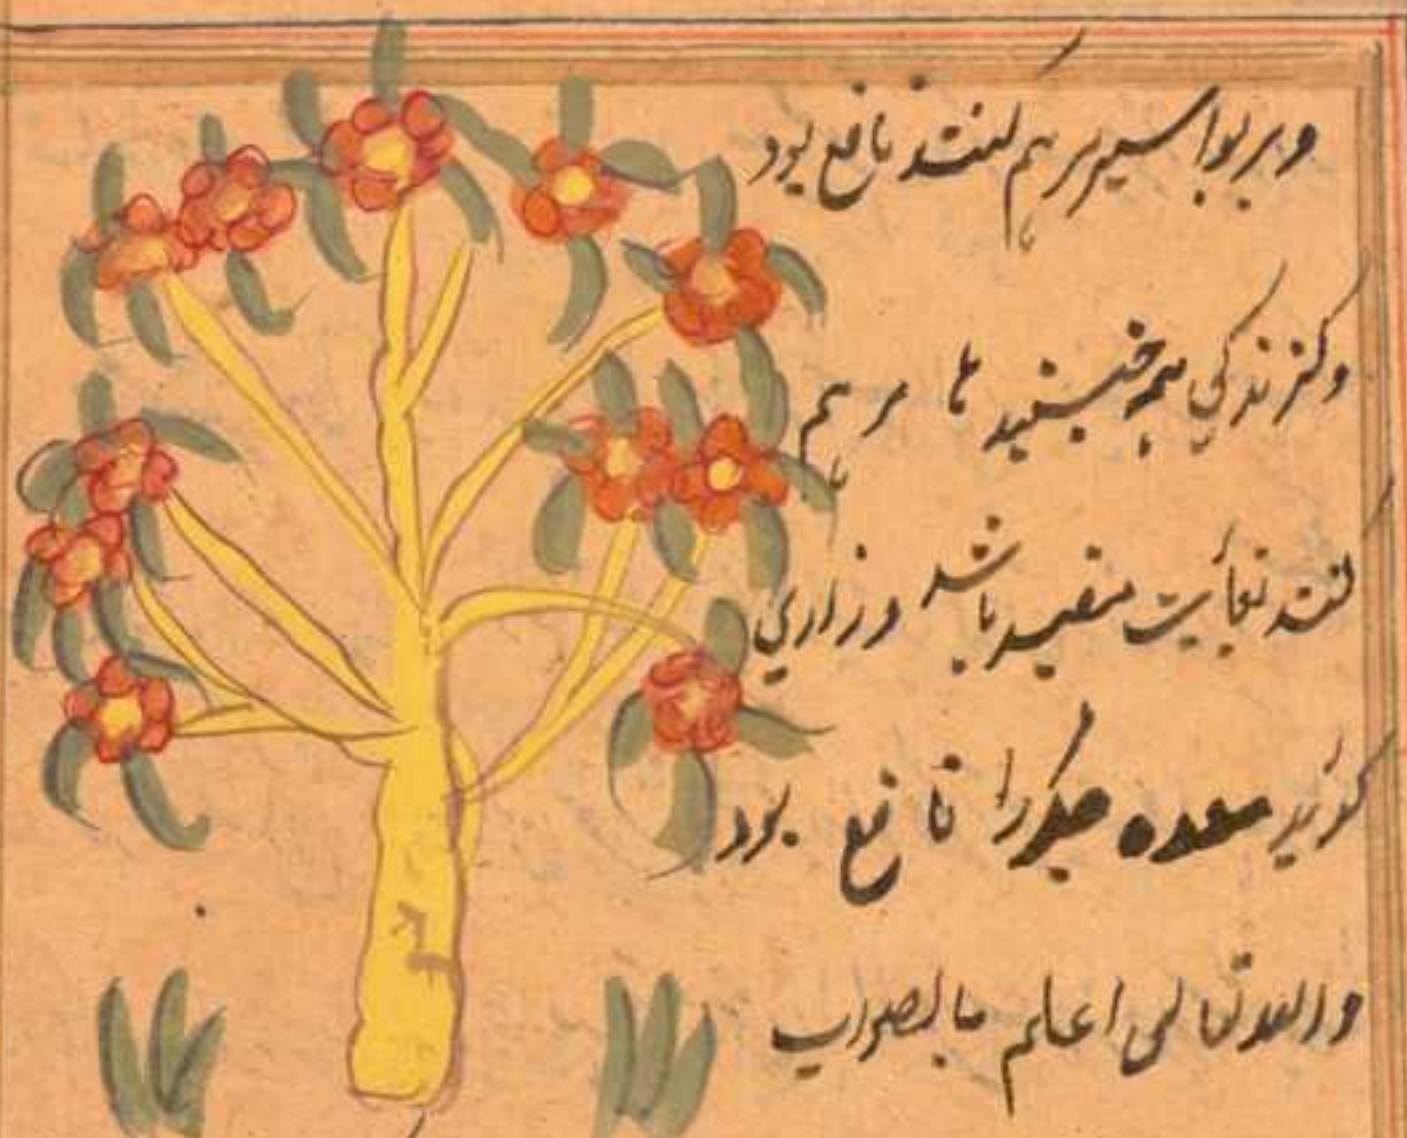 و بر بواسیر مرهم کنند نافع بود
و کزندکی همه جنبنده ها مرهم
کنند بغایت مفید باشد و رازی
کوید معده جکر را نافع بود
والله تعالی اعلم بالصواب